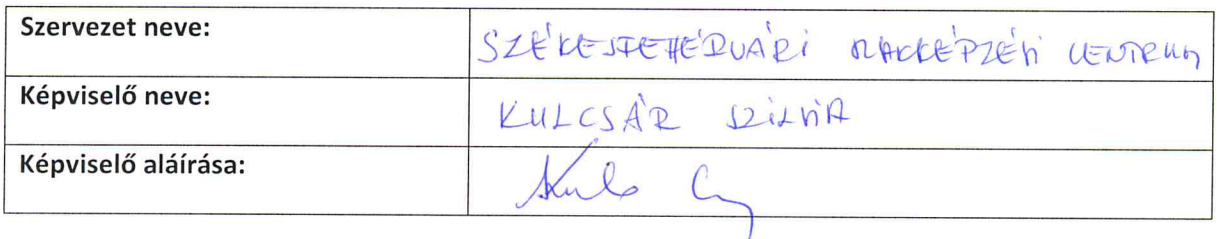 Szervezet neve: SZÉKESFEHÉRVÁRI SZAKKÉPZÉSI CENTRUM
Képviselő neve: KULCSÁR SZILVIA
Képviselő aláírása: